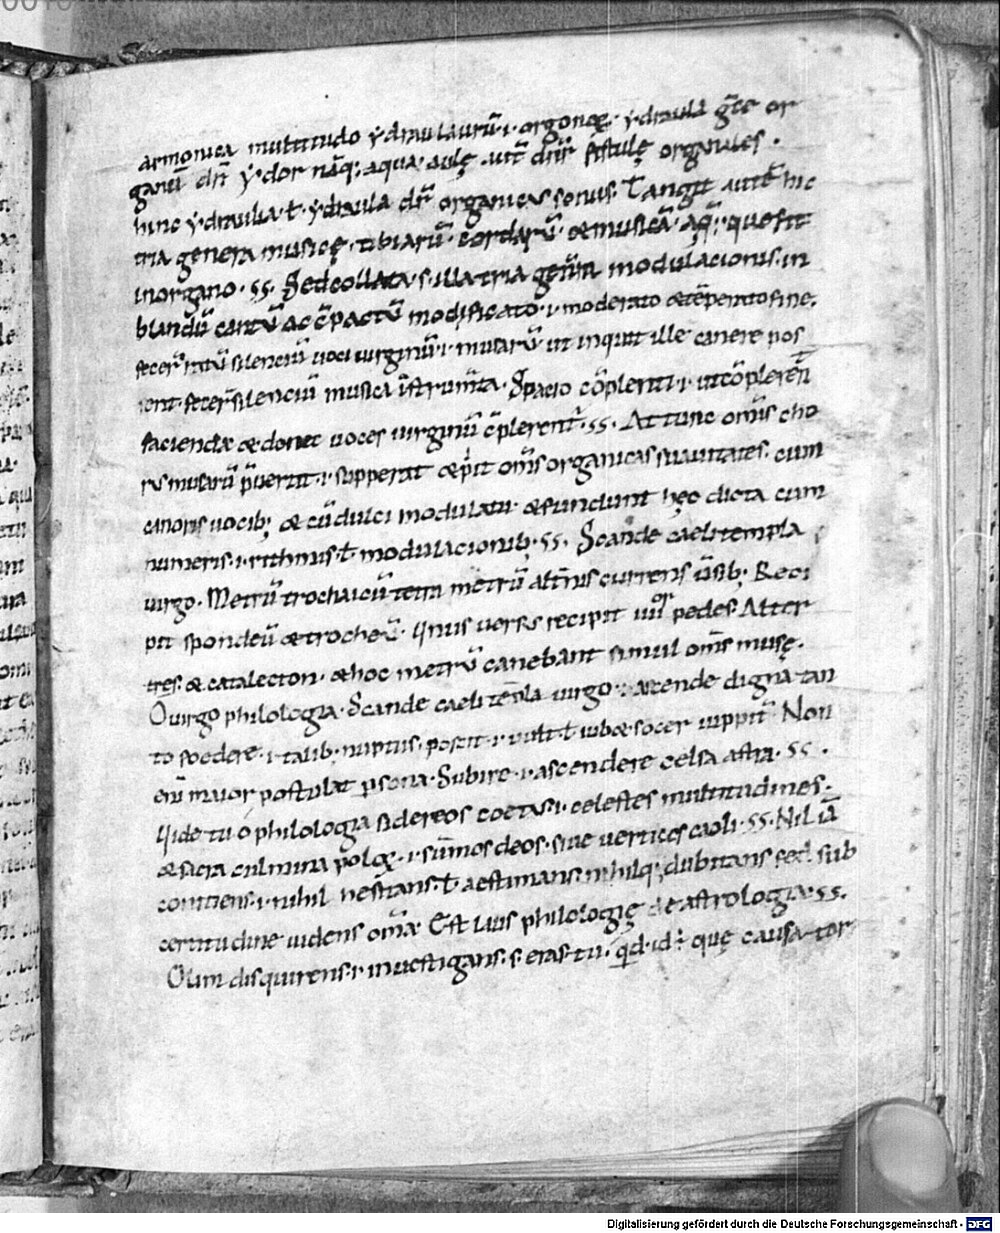 armonica multitudo ẏdraulaurū·i· organoꝝ· ẏdraula grece or
ganū dr̄ ẏdor nāq; aqua· aulę· aut̄ dn̄r fistulę organales·
hinc ẏdraulia· ł· ẏdraula dr̄ organicus sonus· Tangit autē hic
tria genera musicę· tibiarū· cordarū· & musicā· aq̄· que fit
in organo· ss· Sed collata· s· illa tria genera modulacionis· in
blandū cantū ac cōpactū modificato·i· moderato & tēperato fine·
fecer̄ ratū silenciū uoci uirginū·i· musarū ut inquit ille canere pos
sent· fecer̄ silenciū musica īstrumta· Spacio cōplenti·i· ut cōplerent̄
faciendæ & donec uoces uirginū cōplerent̄· ss· At tunc oms cho
rus musarū puenit·i· supperat & p̄it oms organicas suauitates· cum
canoris uocib; & cū dulci modulatu· & fundunt hęc dicta cum
numeris·i· rithmis· ł· modulacionib; ss· Scande caeli templa
uirgo· Metrū trochaicū tetra metrū alt̄nis currens ūsib; Reci
pit spondeū & trocheū· Unus uersus recipit iiii pedes· Alter
tres· & catalecton· & hoc metrū canebant simul oms musę·
O uirgo philologia· Scande caeli tēpla uirgo· ascende digna tan
to foedere·i· talib; nuptiis· poscit·i· uult ł iub& socer iuppit̄ Non
enī maior postulat psona· Subire·i· ascendere celsa astra· ss·
Uide tu o philologia sidereos coetus·i· celestes multitudines·
& sacra culmina poloꝝ·i· sūmos deos· siue uertices caeli· ss· Nil iā
coniciens·i· nihil hesitans· ł· aestimans· nihilq; dubitans sed sub
certitudine uidens omia· Est laus philologię de astrologia· ss·
Olim disquirens·i· inuestigans· s· eras tu· qd· id· ē· quę causa tor
Digitalisierung gefördert durch die Deutsche Forschungsgemeinschaft - DFG